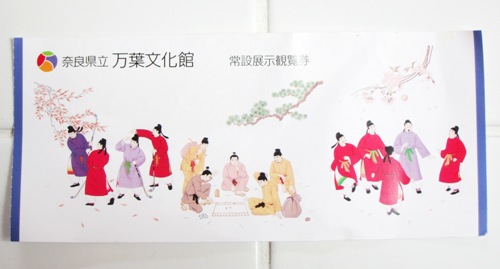 奈良県立 万葉文化館 常設展示観覧券